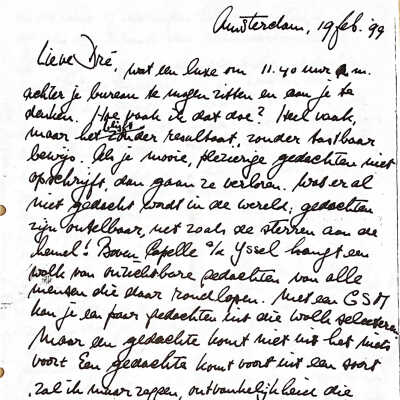 Amsterdam, 19 feb. '99
Lieve Dré,
wat een luxe om 11.40 uur
achter je bureau te mogen zitten en aan je te
denken. Hoe vaak ik dat doe? Heel vaak,
maar het blijft zonder resultaat, zonder tastbaar
bewijs. Als je mooie, plezierige gedachten niet
opschrijft, dan gaan ze verloren. Wat er al
niet gedacht wordt in de wereld; gedachten
zijn ontelbaar, net zoals de sterren aan de
hemel! Boven Capelle a/d Yssel hangt een
wolk van onzichtbare gedachten van alle
mensen die daar rondlopen. Met een GSM
kan je een paar gedachten uit die wolk selecteren
Maar een gedachte komt niet uit het niets
voort Een gedachte komt voort uit een soort
, zal ik maar zeggen, ontvankelijkheid die